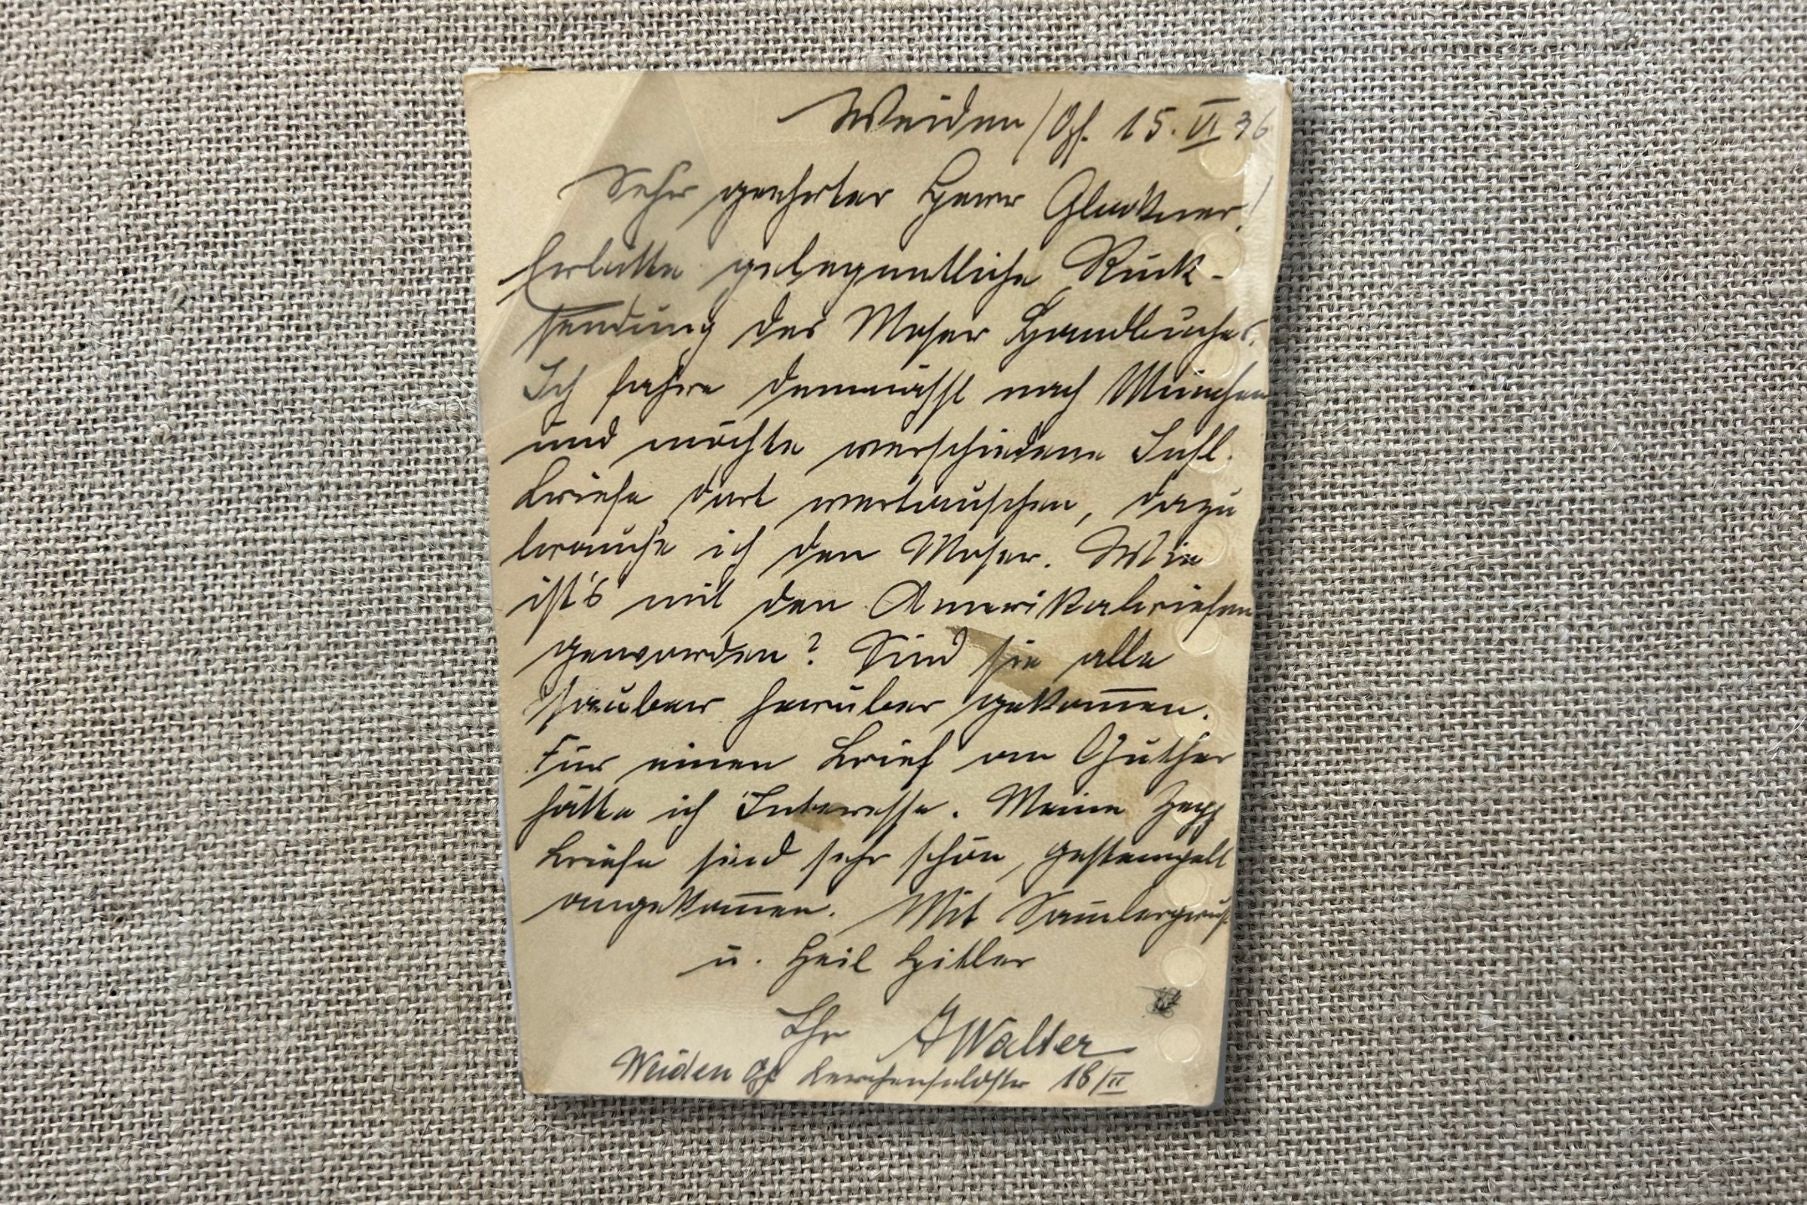 Weiden/Opf. 15. VI 36
Sehr geehrter Herr Glockner!
Erbitte gelegentliche Rück-
sendung des Moser Handbuches.
Ich fahre demnächst nach München
und möchte verschiedene Infl.
briefe dort vertauschen, dazu
brauche ich den Moser. Wie
ist's mit den Amerikabriefen
geworden? Sind sie alle
sauber herüber gekom̅en.
Für einen Brief an Güther
hätte ich Interesse. Meine Zepp
briefe sind sehr schön gestempelt
angekom̅en. Mit Sam̅lergruß
u. Heil Hitler
Ihr Walter
Weiden Opf Lerchenfeldstr 18/II